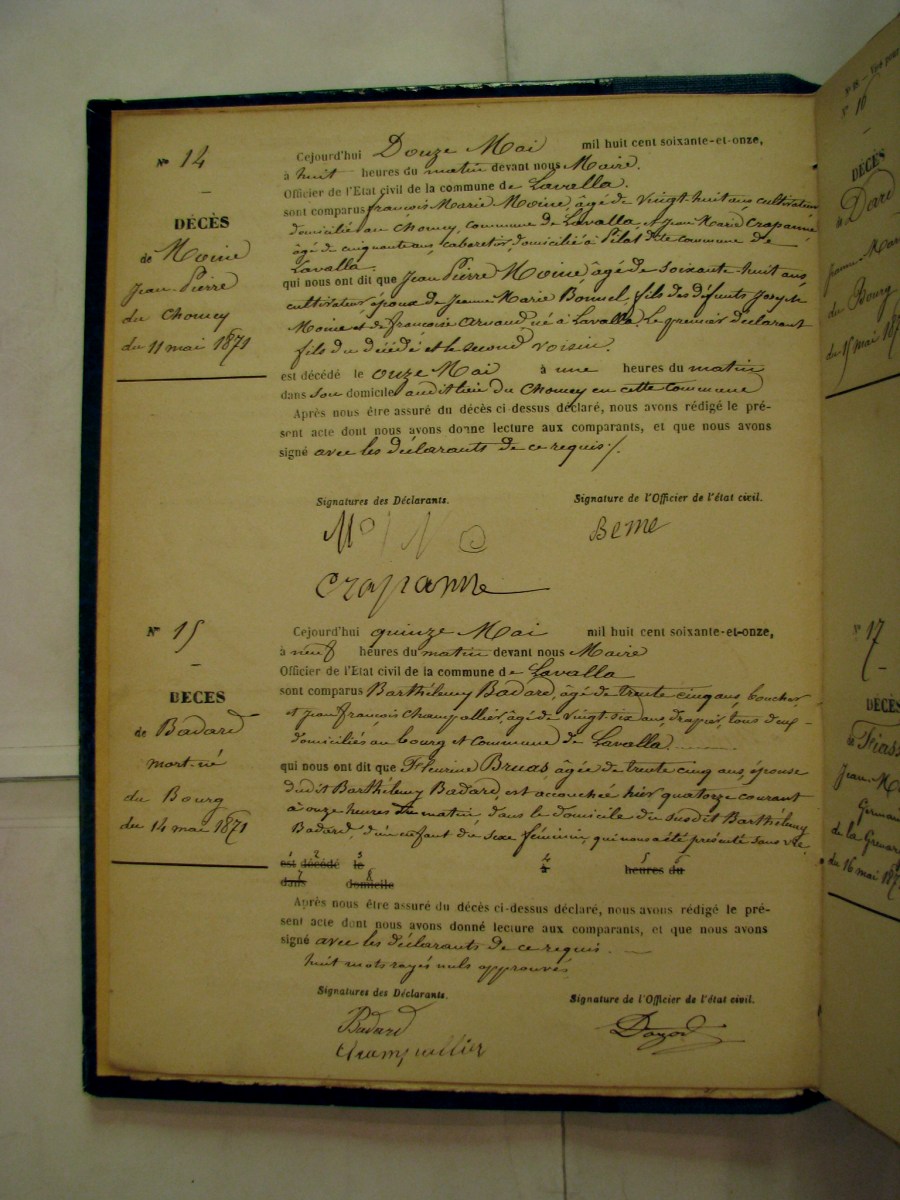 Nº 14
DÉCÈS
de Moine
Jean-Pierre
du Chomey
du 11 mai 1871
Cejourd'hui Douze Mai mil huit cent soixante-et-onze,
à huit heures du matin devant nous Maire.
Officier de l'Etat civil de la commune de Lavalla.
sont comparus françois Marie Moine, âgé de vingt huit ans cultivateur
domicilié au Chomey, commune de Lavalla, et Jean Marie Crapanne
âgé de cinquante ans, cabaretier, domicilié à Pilat dte commune de
Lavalla.
qui nous ont dit que Jean Pierre Moine âgé de soixante-huit ans
cultivateur, époux de Jeanne Marie Bonnel, fils des défunts Joseph
Moine et de françoise Arnaud né à Lavalla. Le premier déclarant
fils du décédé et le second voisin.
est décédé le onze Mai à une heures du matin
dans son domicile audit lieu du Chomey en cette commune
Après nous être assuré du décès ci-dessus déclaré, nous avons rédigé le pré-
sent acte dont nous avons donne lecture aux comparants, et que nous avons
signé avec les déclarants de ce requis /.
Signatures des Déclarants.
Signature de l'Officier de l'état civil.
Crapanne
Nº 15
DÉCÈS
de Badard
mort-né
du Bourg
du 14 mai 1871
Cejourd'hui quinze Mai mil huit cent soixante-et-onze,
à neuf heures du matin devant nous Maire
Officier de l'Etat civil de la commune de Lavalla
sont comparus Barthélemy Badard, âgé de trente cinq ans, boucher
et jean françois Champallier, âgé de vingt six ans, drapier, tous deux
domiciliés au bourg et commune de Lavalla
qui nous ont dit que Fleurine Bruas âgée de trente cinq ans, épouse
dudit Barthélemy Badard, est accouchée hier quatorze courant
à onze heures du matin, dans le domicile du susdit Barthélemy
Badard, d'un enfant du sexe féminin, qui nous a été présenté sans vie.
1 2 3 4 5 6
est décédé le à heures du
7 8
dans domicile
Après nous être assuré du décès ci-dessus déclaré, nous avons rédigé le pré-
sent acte dont nous avons donné lecture aux comparants, et que nous avons
signé avec les déclarants de ce requis.
huit mots rayés nuls approuvés
Signatures des Déclarants.
Signature de l'Officier de l'état civil.
Badard
Champallier
Nº 10
DÉCÈS
du Bourg
du 15 mai
Nº 17
DÉCÈS
Jean-M
du 16 mai 187